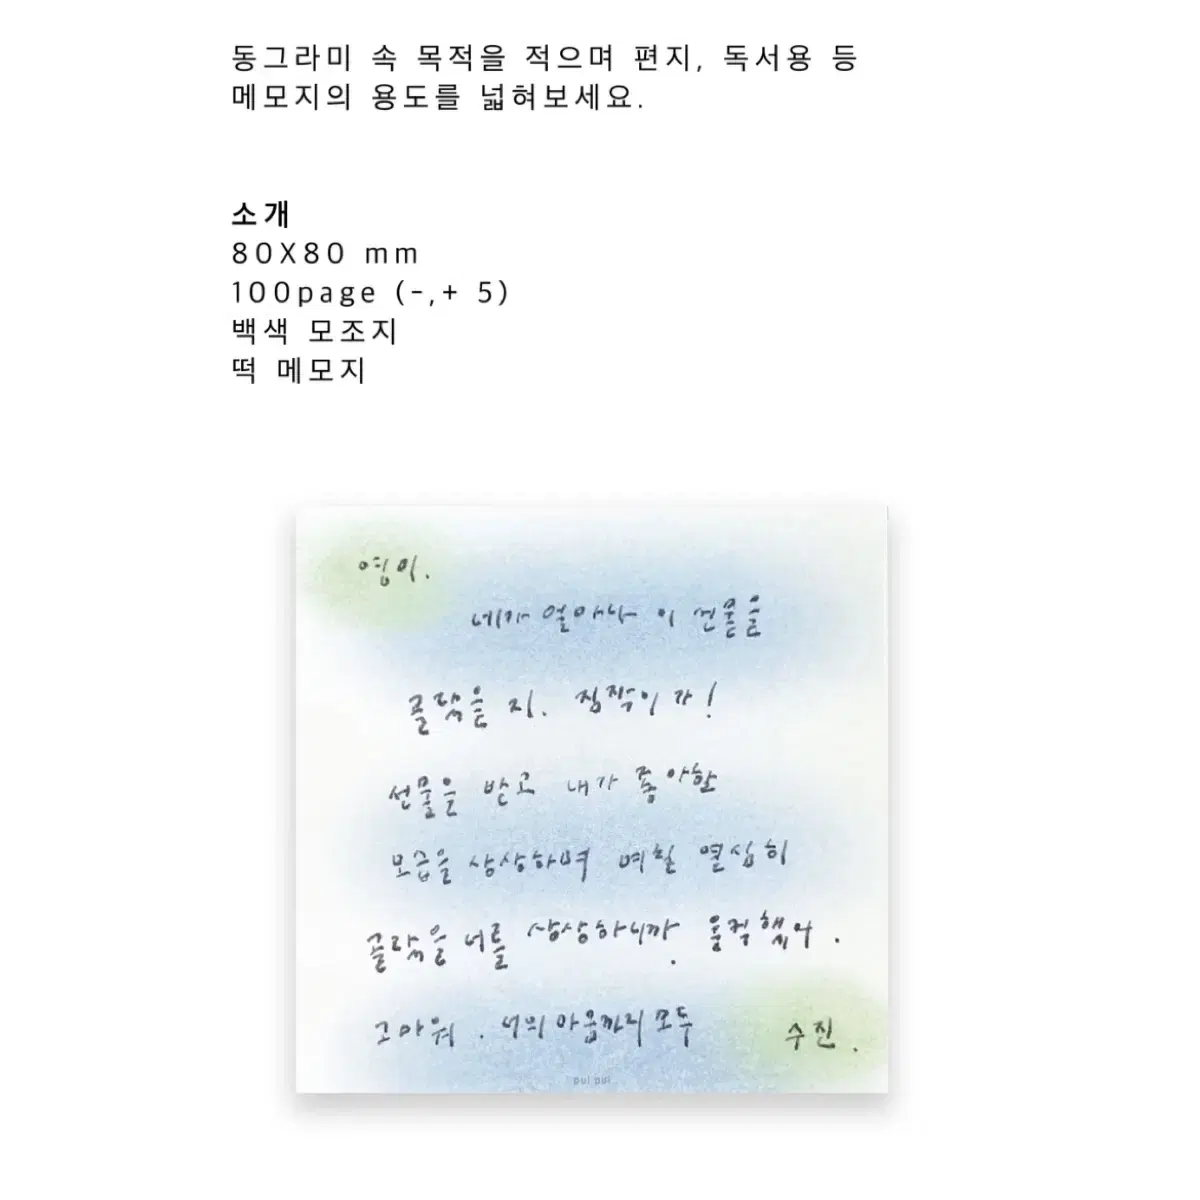 동그라미 속 목적을 적으며 편지, 독서용 등
메모지의 용도를 넓혀보세요.
소개
80X80 mm
100page (-,+ 5)
백색 모조지
떡 메모지
영미.
네가 얼마나 이 선물을
골랐을 지. 짐작이 가!
선물을 받고 내가 좋아할
모습을 상상하며 며칠 열심히
골랐을 너를 상상하니까. 뭉클했어.
고마워. 너의 마음까지 모두
수진.
pui pui